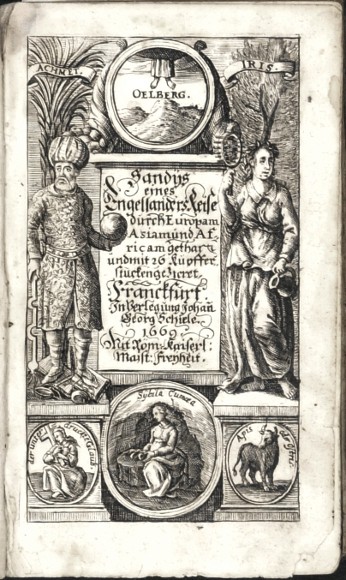 ACHMET.
OELBERG.
ISIS.
Sandys
eines
Engelländers Reise
durch Europam
Asiam und Af
ricam gethan
und mit 26 Kupffer
stücken geziret.
Franckfurt.
In Verlegung Johan
Georg Schiele.
1669.
Mit Rom: Kaiserl:
Maist: Freyheit.
Sybila Cumæa
Apis